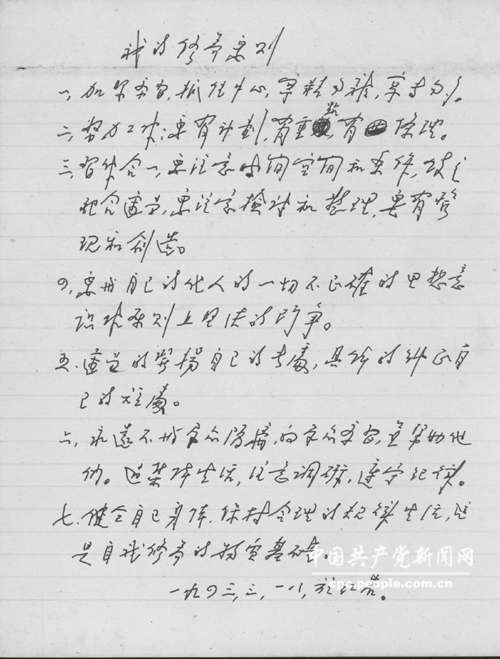 我的修养要则
一、加紧学习,抓住中心,宁精勿杂,宁专勿多。
二、努力工作,要有计划,有重点,有条理。
三、习作合一,要注意时间空间和条件,使之
配合适当,要注意检讨和整理,要有发
现和创造。
四、要与自己的他人的一切不正确的思想意
识作原则上坚决的斗争。
五、适当的发扬自己的长处,具体的纠正自
己的短处。
六、永远不与群众隔离,向群众学习,并帮助他
们。过集体生活,注意调研,遵守纪律。
七、健全自己身体,保持合理的规律生活,这
是自我修养的物质基础。
一九四三,三,一八,于红岩。
中国共产党新闻网
cpc.people.com.cn